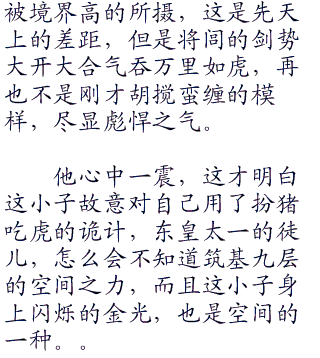 被境界高的所摄，这是先天
上的差距，但是将闾的剑势
大开大合气吞万里如虎，再
也不是刚才胡搅蛮缠的模
样，尽显彪悍之气。
他心中一震，这才明白
这小子故意对自己用了扮猪
吃虎的诡计，东皇太一的徒
儿，怎么会不知道筑基九层
的空间之力，而且这小子身
上闪烁的金光，也是空间的
一种。。